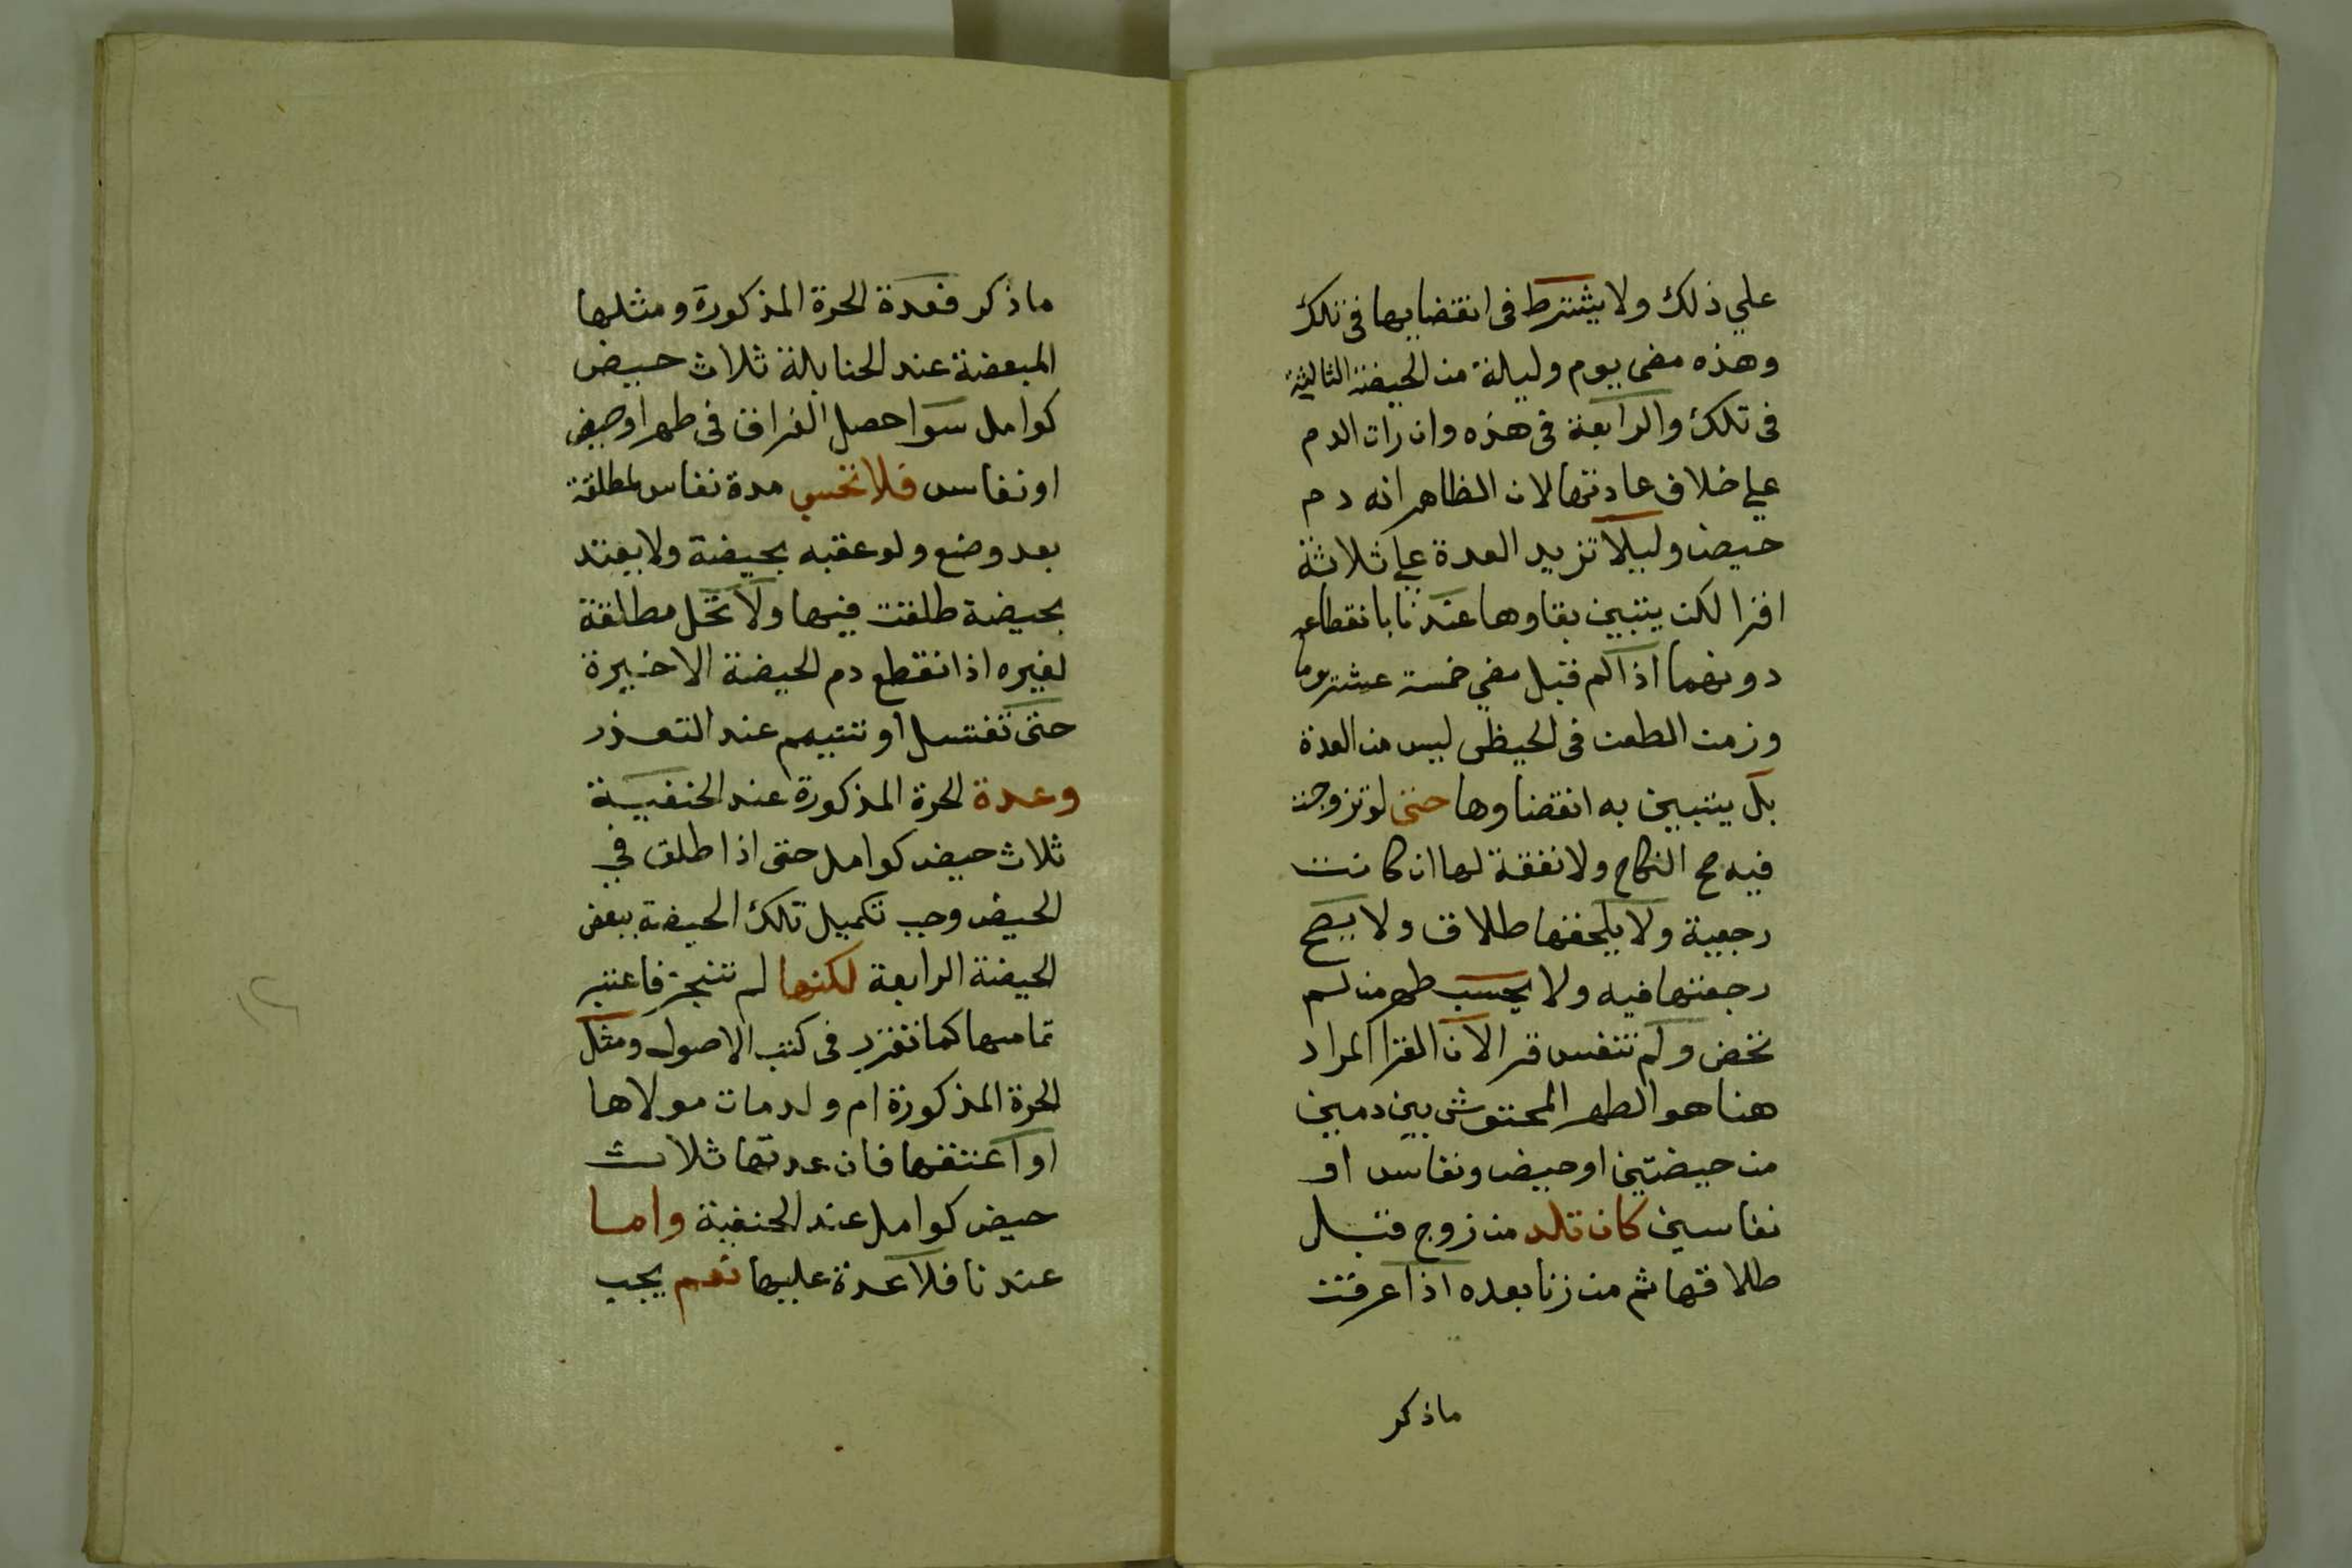 علي ذلك ولا يشترط فى انقضايها فى تلك
وهذه مضى يوم وليلة من الحيضة الثالثة
فى تلك والرابعة فى هذه وان رات الدم
علي خلاف عادتها لان الظاهر انه دم
حيض وليلا تزيد العدة علي ثلاثة
اقرا لكن يتبين بقاوها عندنا بانقطاعه
دونهما اذا لم قبل مضي خمسة عشر يوما
وزمن الطعن فى الحيظى ليس من العدة
بل يتبين به انقضاوها حتى لو تزوجت
فيه صح النكاح ولا نفقة لها ان كانت
رجعية ولا يلحقها طلاق ولا يصح
رجعتها فيه ولا يحسب طهر من لم
تحض ولم تنفس قر الان القرا المراد
هنا هو الطهر المحتوش بين دمين
من حيضتين او حيض ونفاس او
نفاسين كان تلد من زوج قبل
طلاقها ثم من زنا بعده اذا عرفت
ماذكر
ماذكر فعدة الحرة المذكورة ومثلها
المبعضة عند الحنابلة ثلاث حيض
كوامل سوا حصل الفراق فى طهر او حيض
او نفاس فلا تحسب مدة نفاس لمطلقة
بعد وضع ولو عقبه بحيضة ولا يعتد
بحيضة طلقت فيها ولا تحل مطلقة
لغيره اذا انقطع دم الحيضة الاخيرة
حتى تغتسل او تتيمم عند التعذر
وعدة الحرة المذكورة عند الحنفية
ثلاث حيض كوامل حتى اذا طلق في
الحيض وجب تكميل تلك الحيضة ببعض
الحيضة الرابعة لكنها لم تتجز فاعتبر
تمامها كما تقرر فى كتب الاصول ومثل
الحرة المذكورة ام ولد مات مولاها
او اعتقها فان عدتها ثلاث
حيض كوامل عند الحنفية واما
عندنا فلا عدة عليها نعم يجب
١٢